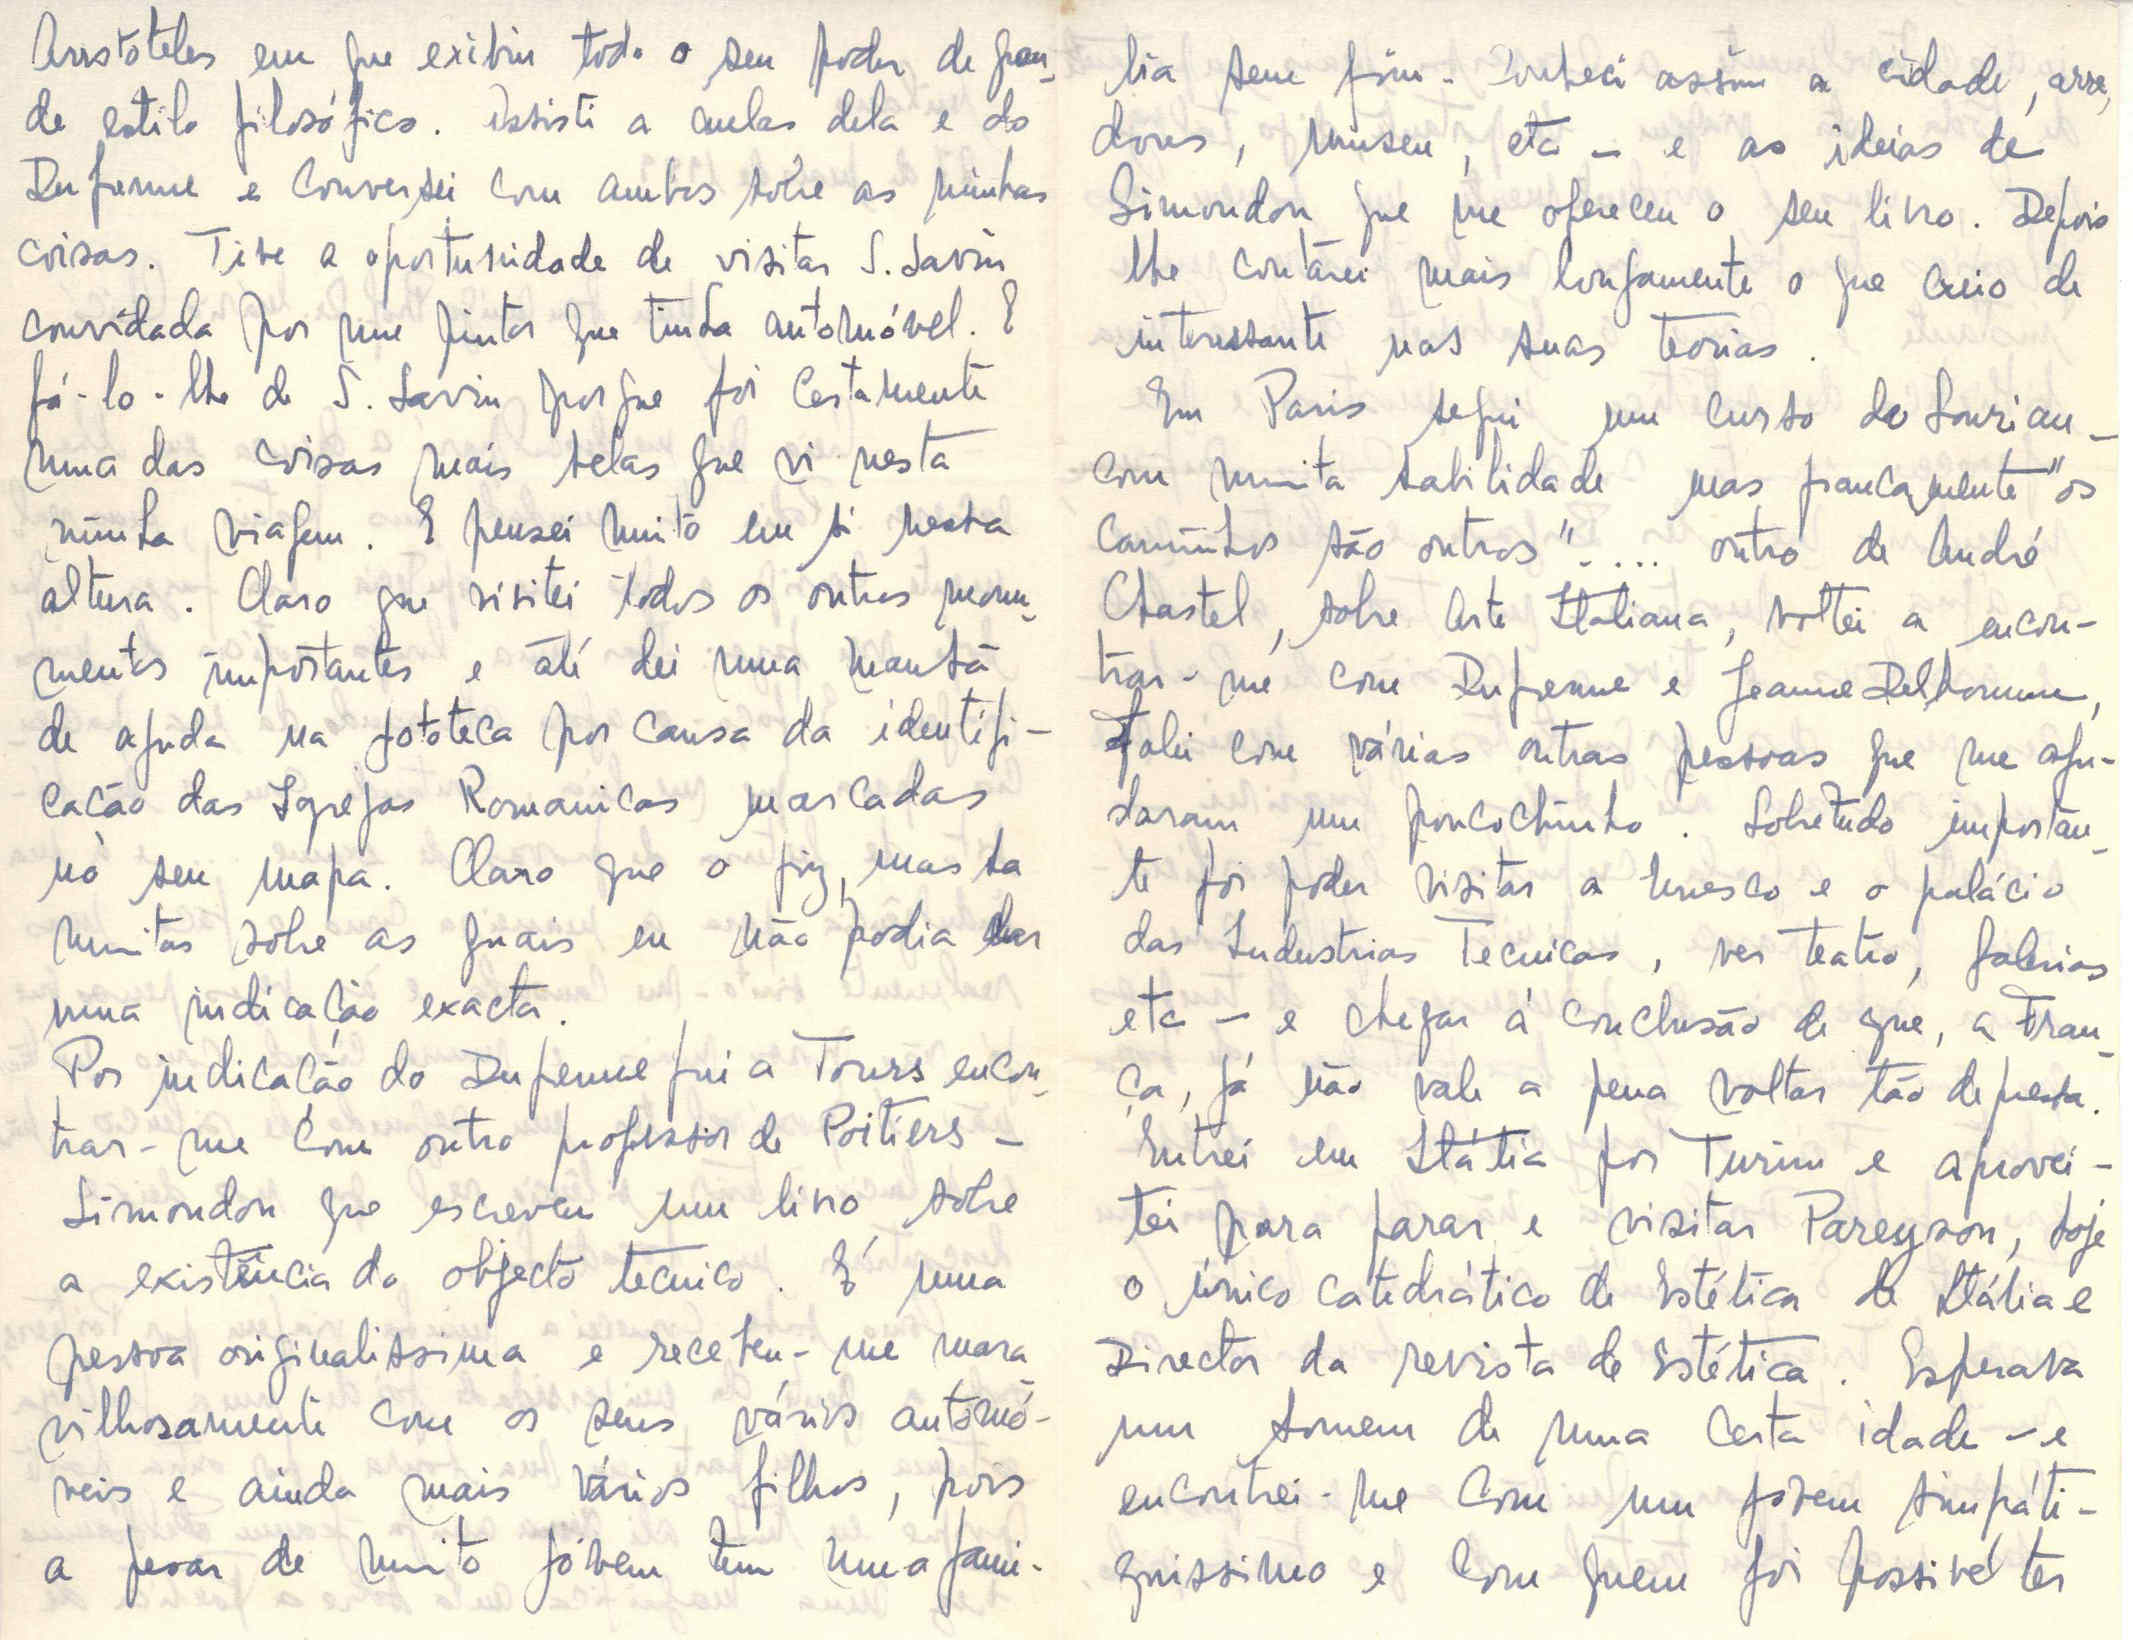 Aristóteles em que exibiu todo o seu poder de gran-
de estilo filosófico. Assisti a aulas dela e do
Dufrenne e conversei com ambos sôbre as minhas
coisas. Tive a oportunidade de visitar S. Savin
convidada por um pintor que tinha automóvel. E
falo-lhe de S. Savin porque foi certamente
uma das coisas mais belas que vi nesta
minha viagem. E pensei muito em si nessa
altura. Claro que visitei todos os outros monu-
mentos importantes e até dei uma manhã
de ajuda na fototeca por causa da identifi-
cação das Igrejas Romanicas marcadas
no seu mapa. Claro que o fiz, mas ha
muitas sobre as quais eu não podia dar
uma indicação exacta.
Por indicação do Dufrenne fui a Tours encon-
trar-me com outro professor de Poitiers -
Simondon que escreveu um livro sobre
a existência do objecto tecnico. É uma
pessoa originalissima e recebeu-me mara-
vilhosamente com os seus vários automó-
veis e ainda mais vários filhos, pois
a pesar de muito jóvem tem uma famí-
lia sem fim - Conheci assim a cidade, arre-
dores, museu, etc - e as ideias de
Simondon que me ofereceu o seu livro. Depois
lhe contarei mais longamente o que creio de
interessante nas suas teorias.
Em Paris segui um curso do Souriau -
com muita habilidade mas francamente "os
caminhos são outros".... outro de André
Chastel, sobre Arte Italiana, voltei a encon-
trar-me com Dufrenne e Jeanne Delhomme,
falei com várias outras pessoas que me aju-
daram um poucochinho. Sobretudo importan-
te foi poder visitar a Unesco e o palácio
das Industrias Tecnicas, ver teatro, galerias
etc - e chegar á conclusão de que, a Fran-
ça, já não vale a pena voltar tão depressa.
Entrei em Itália por Turim e aprovei-
tei para parar e visitar Pareyson, hoje
o único catedrático de Estética de Itália e
Director da revista de Estética. Esperava
um homem de uma certa idade - e
encontrei-me com um jovem simpáti-
quissimo e com quem foi possivel ter